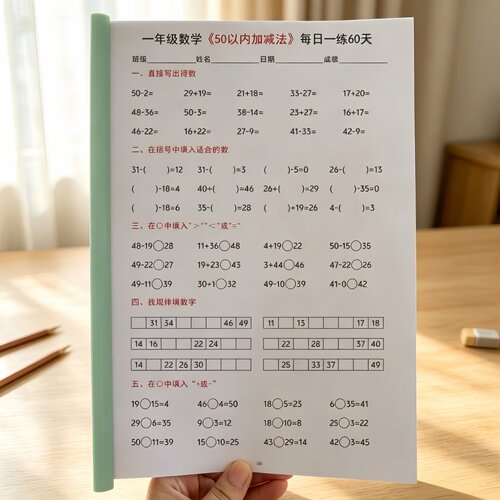 一年级数学《50以内加减法》每日一练60天
班级 姓名 日期 成绩
一、直接写出得数
50-2= 29+19= 21+18= 33-27= 17+20=
48-36= 50-3= 38-14= 23+27= 16+17=
46-22= 16+22= 27-9= 41-33= 42-9=
二、在括号中填入适合的数
31-( )=12 31-( )=3 ( )-5=0 26-( )=13
( )-18=4 40+( )=46 26+( )=29 ( )-35=0
( )-18=6 35-( )=28 ( )+19=26 4-( )=3
三、在○中填入">""<"或"="
48-19○28 11+36○48 4+19○22 50-15○35
49-22○27 19+23○43 3+44○46 47-22○26
49-11○39 30+1○32 49-10○39 41-0○42
四、找规律填数字
31 34 46 49 11 13 17 18
14 16 22 24 20 22 28 37 40
14 22 26 30 22 25 33 37 49
五、在○中填入"+或-"
19○15=4 46○4=50 18○5=23 6○35=41
29○6=35 9○3=12 18○10=8 25○3=22
50○11=39 15○10=25 43○29=14 42○3=45